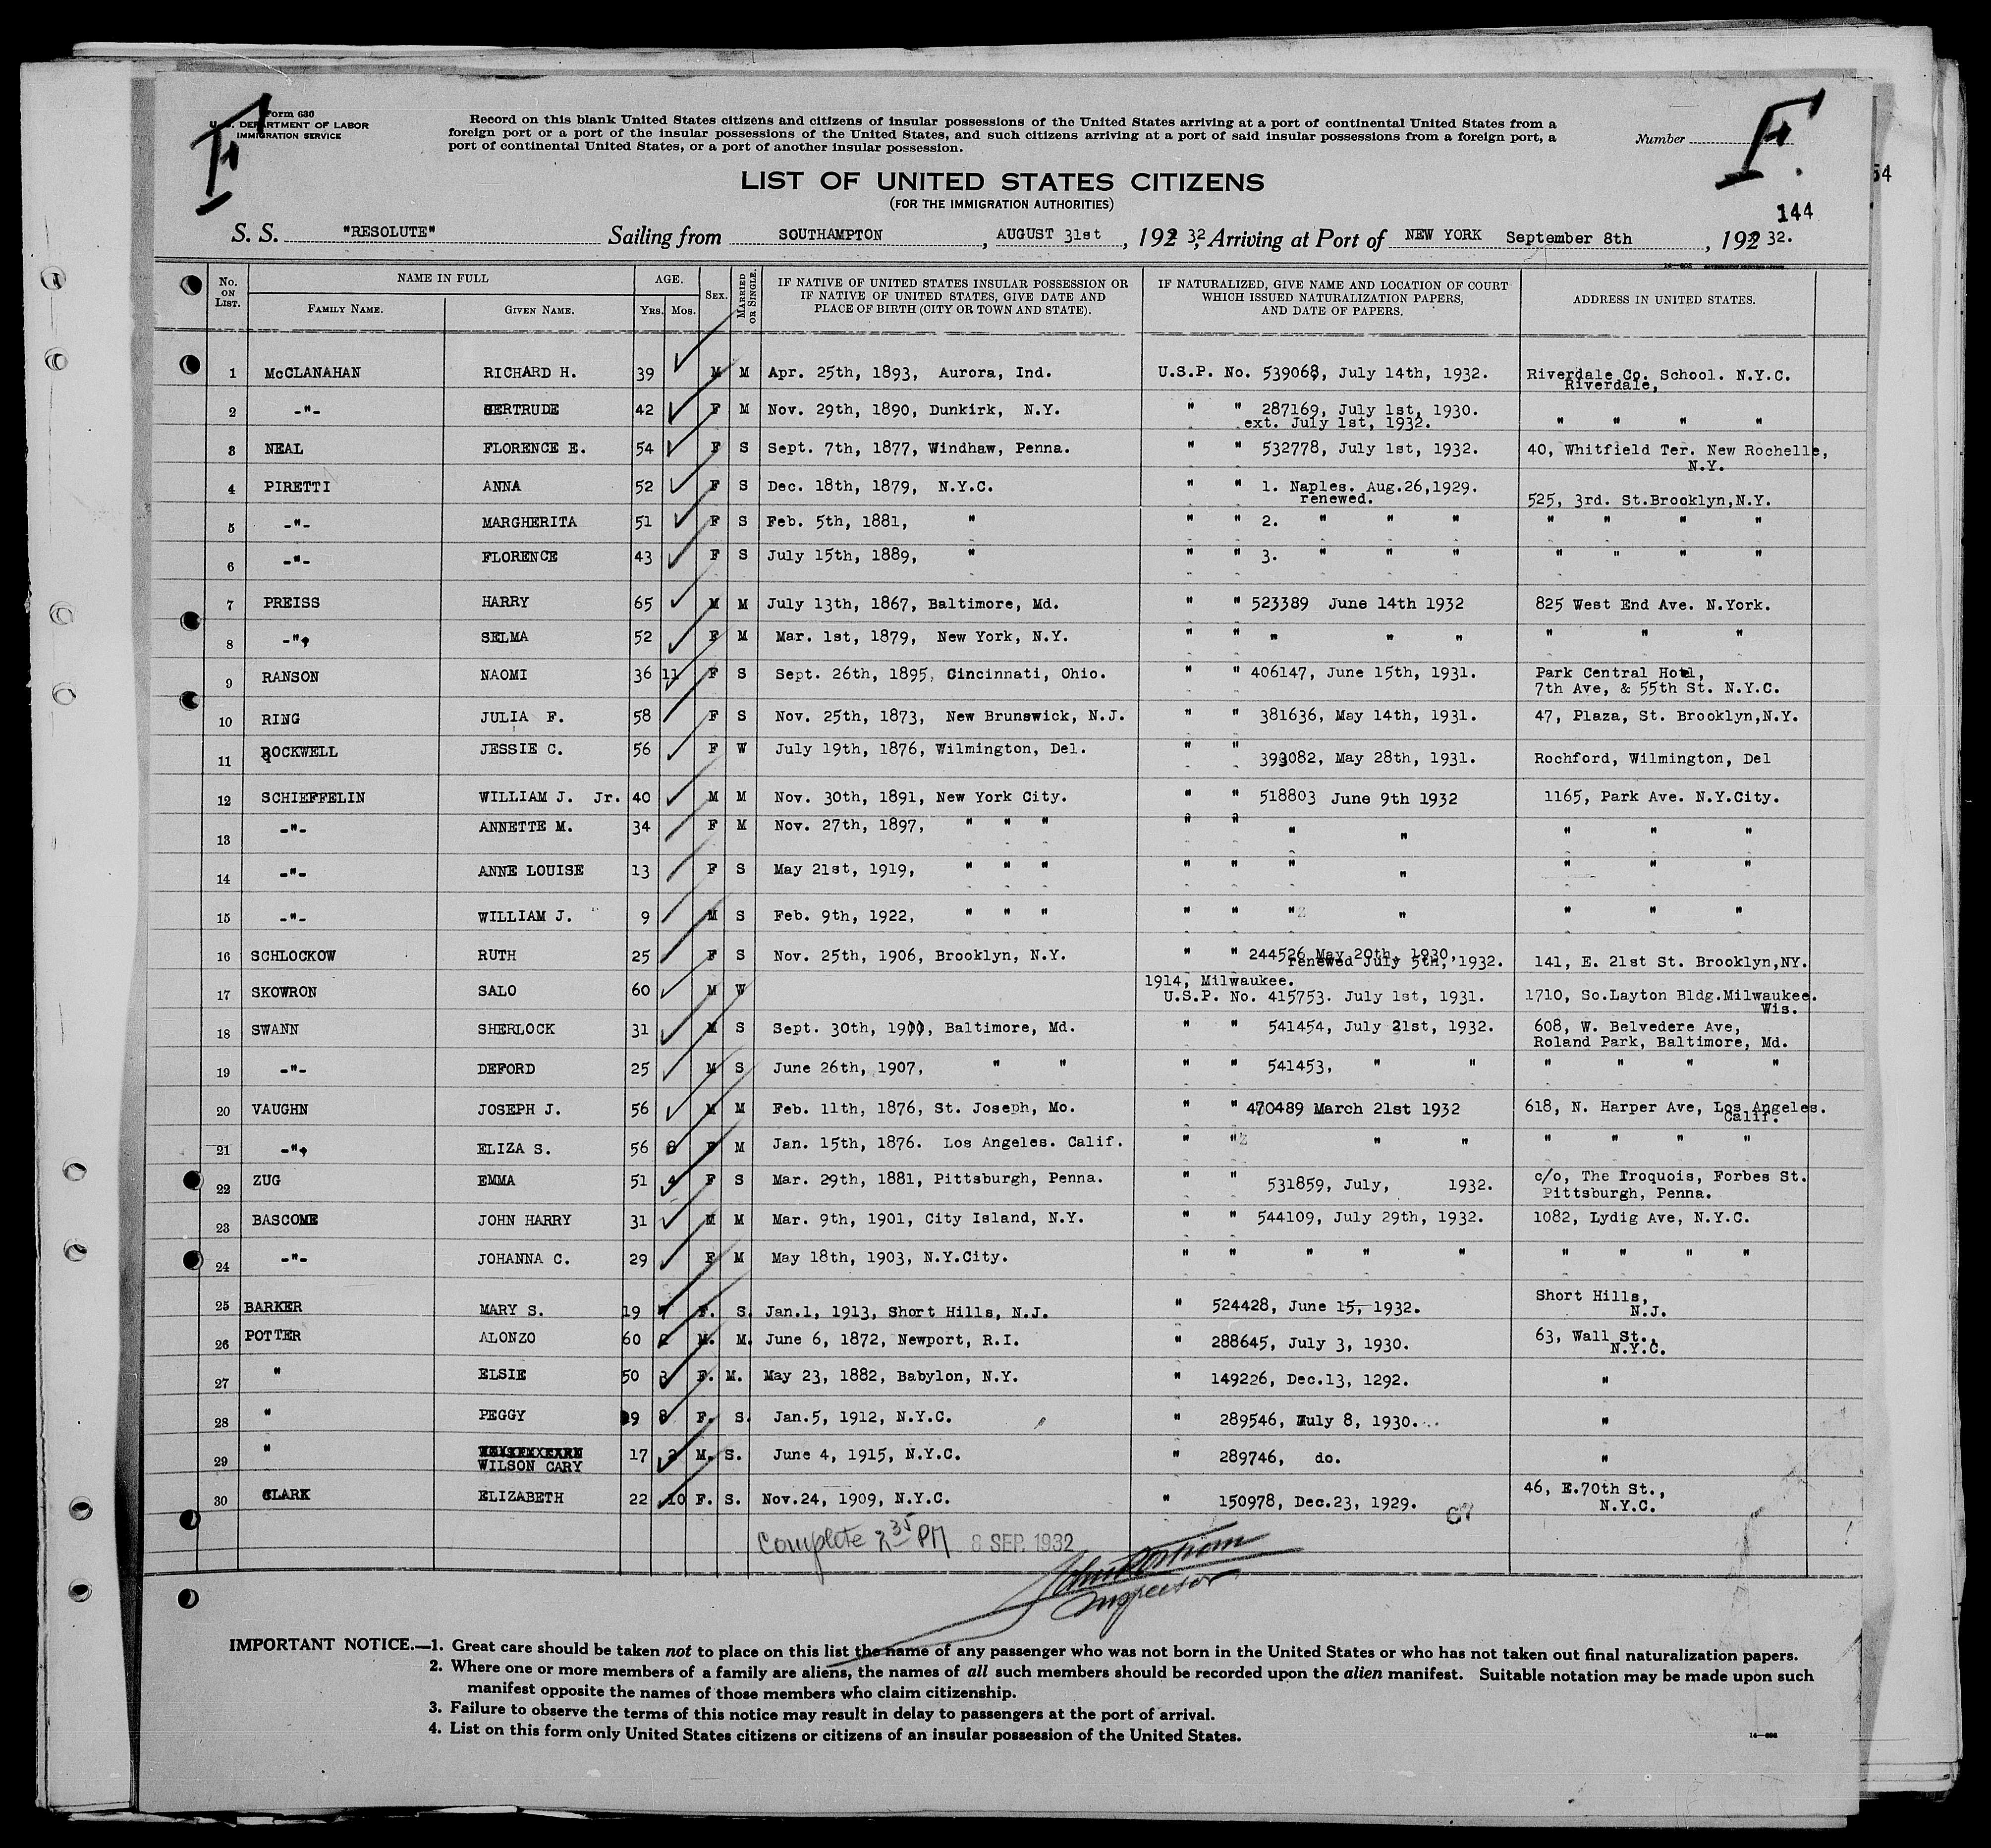 Form 630
U. S. DEPARTMENT OF LABOR
IMMIGRATION SERVICE
F
Record on this blank United States citizens and citizens of insular possessions of the United States arriving at a port of continental United States from a
foreign port or a port of the insular possessions of the United States, and such citizens arriving at a port of said insular possessions from a foreign port, a
port of continental United States, or a port of another insular possession.
Number
F.
54
LIST OF UNITED STATES CITIZENS
(FOR THE IMMIGRATION AUTHORITIES)
144
S. S. "RESOLUTE" Sailing from SOUTHAMPTON, AUGUST 31st, 192 32, Arriving at Port of NEW YORK September 8th, 192 32.
No. ON LIST. NAME IN FULL FAMILY NAME. GIVEN NAME. AGE. YRS. MOS. SEX. MARRIED OR SINGLE. IF NATIVE OF UNITED STATES INSULAR POSSESSION OR IF NATIVE OF UNITED STATES, GIVE DATE AND PLACE OF BIRTH (CITY OR TOWN AND STATE). IF NATURALIZED, GIVE NAME AND LOCATION OF COURT WHICH ISSUED NATURALIZATION PAPERS, AND DATE OF PAPERS. ADDRESS IN UNITED STATES.
1 McCLANAHAN RICHARD H. 39 M M Apr. 25th, 1893, Aurora, Ind. U.S.P. No. 539068, July 14th, 1932. Riverdale Co. School. N.Y.C.
Riverdale,
2 -"- GERTRUDE 42 F M Nov. 29th, 1890, Dunkirk, N.Y. " " 287169, July 1st, 1930. " " " "
ext. July 1st, 1932.
3 NEAL FLORENCE E. 54 F S Sept. 7th, 1877, Windhaw, Penna. " " 532778, July 1st, 1932. 40, Whitfield Ter. New Rochelle,
N.Y.
4 PIRETTI ANNA 52 F S Dec. 18th, 1879, N.Y.C. " " 1. Naples. Aug.26,1929.
renewed. 525, 3rd. St.Brooklyn,N.Y.
5 -"- MARGHERITA 51 F S Feb. 5th, 1881, " " " 2. " " " " " " "
6 -"- FLORENCE 43 F S July 15th, 1889, " " " 3. " " " " " " "
7 PREISS HARRY 65 M M July 13th, 1867, Baltimore, Md. " " 523389 June 14th 1932 825 West End Ave. N.York.
8 -"- SELMA 52 F M Mar. 1st, 1879, New York, N.Y. " " " " " " " "
9 RANSON NAOMI 36 11 F S Sept. 26th, 1895, Cincinnati, Ohio. " " 406147, June 15th, 1931. Park Central Hotel,
7th Ave, & 55th St. N.Y.C.
10 RING JULIA F. 58 F S Nov. 25th, 1873, New Brunswick, N.J. " " 381636, May 14th, 1931. 47, Plaza, St. Brooklyn,N.Y.
11 ROCKWELL JESSIE C. 56 F W July 19th, 1876, Wilmington, Del. " " 393082, May 28th, 1931. Rochford, Wilmington, Del
12 SCHIEFFELIN WILLIAM J. Jr. 40 M M Nov. 30th, 1891, New York City. " " 518803 June 9th 1932 1165, Park Ave. N.Y.City.
13 -"- ANNETTE M. 34 F M Nov. 27th, 1897, " " " " " " " " " "
14 -"- ANNE LOUISE 13 F S May 21st, 1919, " " " " " " " " " "
15 -"- WILLIAM J. 9 M S Feb. 9th, 1922, " " " " " " " " " "
16 SCHLOCKOW RUTH 25 F S Nov. 25th, 1906, Brooklyn, N.Y. " " 244526 May 20th, 1930,
renewed July 5th, 1932. 141, E. 21st St. Brooklyn,NY.
17 SKOWRON SALO 60 M W 1914, Milwaukee.
U.S.P. No. 415753. July 1st, 1931. 1710, So.Layton Bldg.Milwaukee.
Wis.
18 SWANN SHERLOCK 31 M S Sept. 30th, 1900, Baltimore, Md. " " 541454, July 21st, 1932. 608, W. Belvedere Ave,
Roland Park, Baltimore, Md.
19 -"- DEFORD 25 M S June 26th, 1907, " " " " 541453, " " " " " "
20 VAUGHN JOSEPH J. 56 M M Feb. 11th, 1876, St. Joseph, Mo. " " 470489 March 21st 1932 618, N. Harper Ave, Los Angeles.
Calif.
21 -"- ELIZA S. 56 F M Jan. 15th, 1876. Los Angeles. Calif. " " " " " " " "
22 ZUG EMMA 51 4 F S Mar. 29th, 1881, Pittsburgh, Penna. " " 531859, July, 1932. c/o, The Iroquois, Forbes St.
Pittsburgh, Penna.
23 BASCOME JOHN HARRY 31 M M Mar. 9th, 1901, City Island, N.Y. " " 544109, July 29th, 1932. 1082, Lydig Ave, N.Y.C.
24 -"- JOHANNA C. 29 F M May 18th, 1903, N.Y.City. " " " " " " " " "
25 BARKER MARY S. 19 7 F. S. Jan.1, 1913, Short Hills, N.J. " 524428, June 15, 1932. Short Hills,
N.J.
26 POTTER ALONZO 60 2 M. M. June 6, 1872, Newport, R.I. " 288645, July 3, 1930. 63, Wall St.,
N.Y.C.
27 " ELSIE 50 3 F. M. May 23, 1882, Babylon, N.Y. " 149226, Dec.13, 1292. "
28 " PEGGY 19 8 F. S. Jan.5, 1912, N.Y.C. " 289546, July 8, 1930. "
29 " WILSON CARY 17 3 M. S. June 4, 1915, N.Y.C. " 289746, do. "
30 CLARK ELIZABETH 22 10 F. S. Nov.24, 1909, N.Y.C. " 150978, Dec.23, 1929. 46, E.70th St.,
N.Y.C.
Complete 2 35 PM 8 SEP. 1932
Inspector
IMPORTANT NOTICE.—1. Great care should be taken not to place on this list the name of any passenger who was not born in the United States or who has not taken out final naturalization papers.
2. Where one or more members of a family are aliens, the names of all such members should be recorded upon the alien manifest. Suitable notation may be made upon such
manifest opposite the names of those members who claim citizenship.
3. Failure to observe the terms of this notice may result in delay to passengers at the port of arrival.
4. List on this form only United States citizens or citizens of an insular possession of the United States.